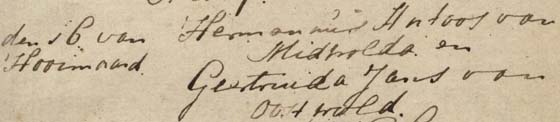 den 16 van
Hooimaand.
Hermannus Antoos van
Midwolda en
Geertruida Jans van
Oostwold.